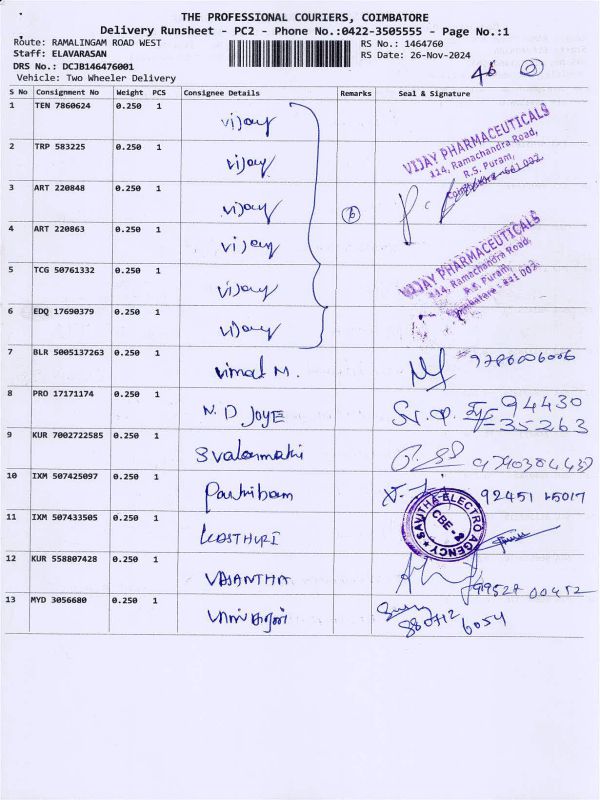 THE PROFESSIONAL COURIERS, COIMBATORE
Delivery Runsheet - PC2 - Phone No.:0422-3505555 - Page No.:1
Route: RAMALINGAM ROAD WEST
RS No.: 1464760
Staff: ELAVARASAN
RS Date: 26-Nov-2024
DRS No.: DCJB146476001
46
Vehicle: Two Wheeler Delivery
S No Consignment No Weight PCS Consignee Details Remarks Seal & Signature
1 TEN 7860624 0.250 1 Vijay
VIJAY PHARMACEUTICALS
114, Ramachandra Road,
R.S. Puram,
Coimbatore-641 002.
2 TRP 583225 0.250 1 Vijay
3 ART 220848 0.250 1 Vijay 6
4 ART 220863 0.250 1 Vijay
VIJAY PHARMACEUTICALS
114, Ramachandra Road,
R.S. Puram,
Coimbatore - 641 002.
5 TCG 50761332 0.250 1 Vijay
6 EDQ 17690379 0.250 1 Vijay
7 BLR 5005137263 0.250 1 Vimal M. 9786006006
8 PRO 17171174 0.250 1 N. D JOYE 94430
35263
9 KUR 7002722585 0.250 1
10 IXM 507425097 0.250 1 92451 15017
11 IXM 507433505 0.250 1 KOSTHURI
SAVITHA ELECTRO AGENCY
12 KUR 558807428 0.250 1 VASANTHA 99527 00452
13 MYD 3056680 0.250 1
880712
6054